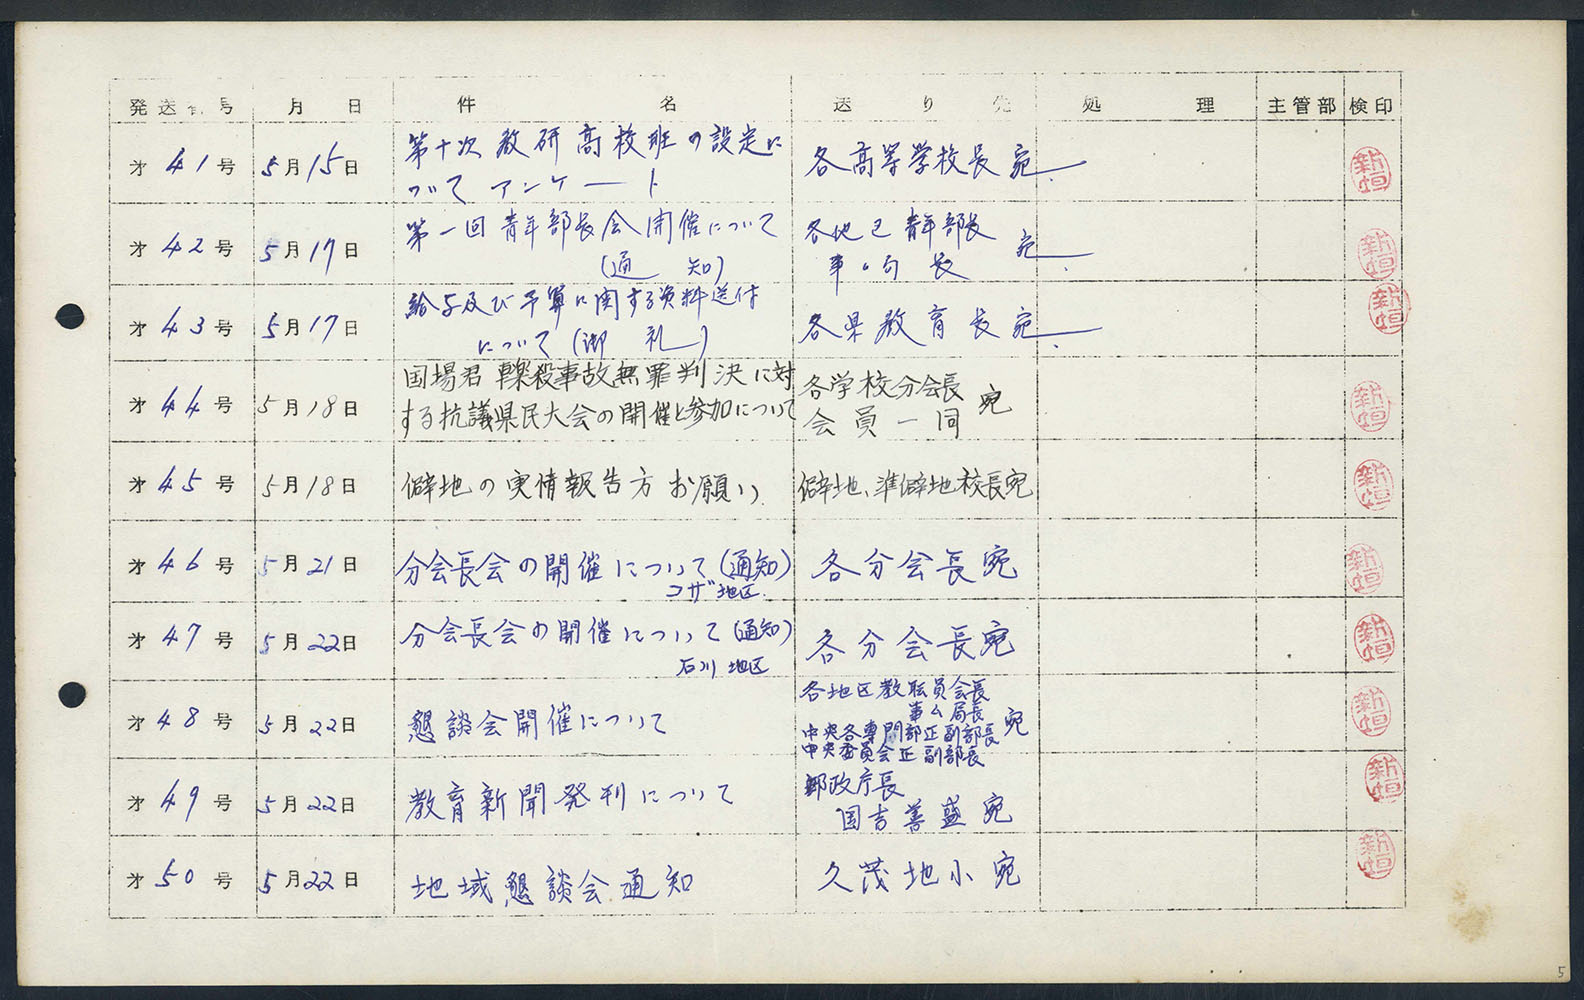 発送番号 月日 件名 送り先 処理 主管部 検印
才41号 5月15日 第十次教研高校班の設定に 各高等学校長宛 新垣
ついてアンケート
才42号 5月17日 第一回青年部長会開催について 各地区青年部長宛 新垣
(通知) 事ム局長
才43号 5月17日 給与及び予算に関する資料送付 各県教育長宛 新垣
について(御礼)
才44号 5月18日 国場君轢殺事故無罪判決に対 各学校分会長 宛 新垣
する抗議県民大会の開催と参加について 会員一同
才45号 5月18日 僻地の実情報告方お願い 僻地、準僻地校長宛 新垣
才46号 5月21日 分会長会の開催について(通知) 各分会長宛 新垣
コザ地区
才47号 5月22日 分会長会の開催について(通知) 各分会長宛 新垣
石川地区
才48号 5月22日 懇談会開催について 各地区教職員会長 新垣
事ム局長
中央各専門部正副部長 宛
中央委員会正副部長
才49号 5月22日 教育新聞発刊について 郵政庁長 新垣
国吉善盛宛
才50号 5月22日 地域懇談会通知 久茂地小宛 新垣
5